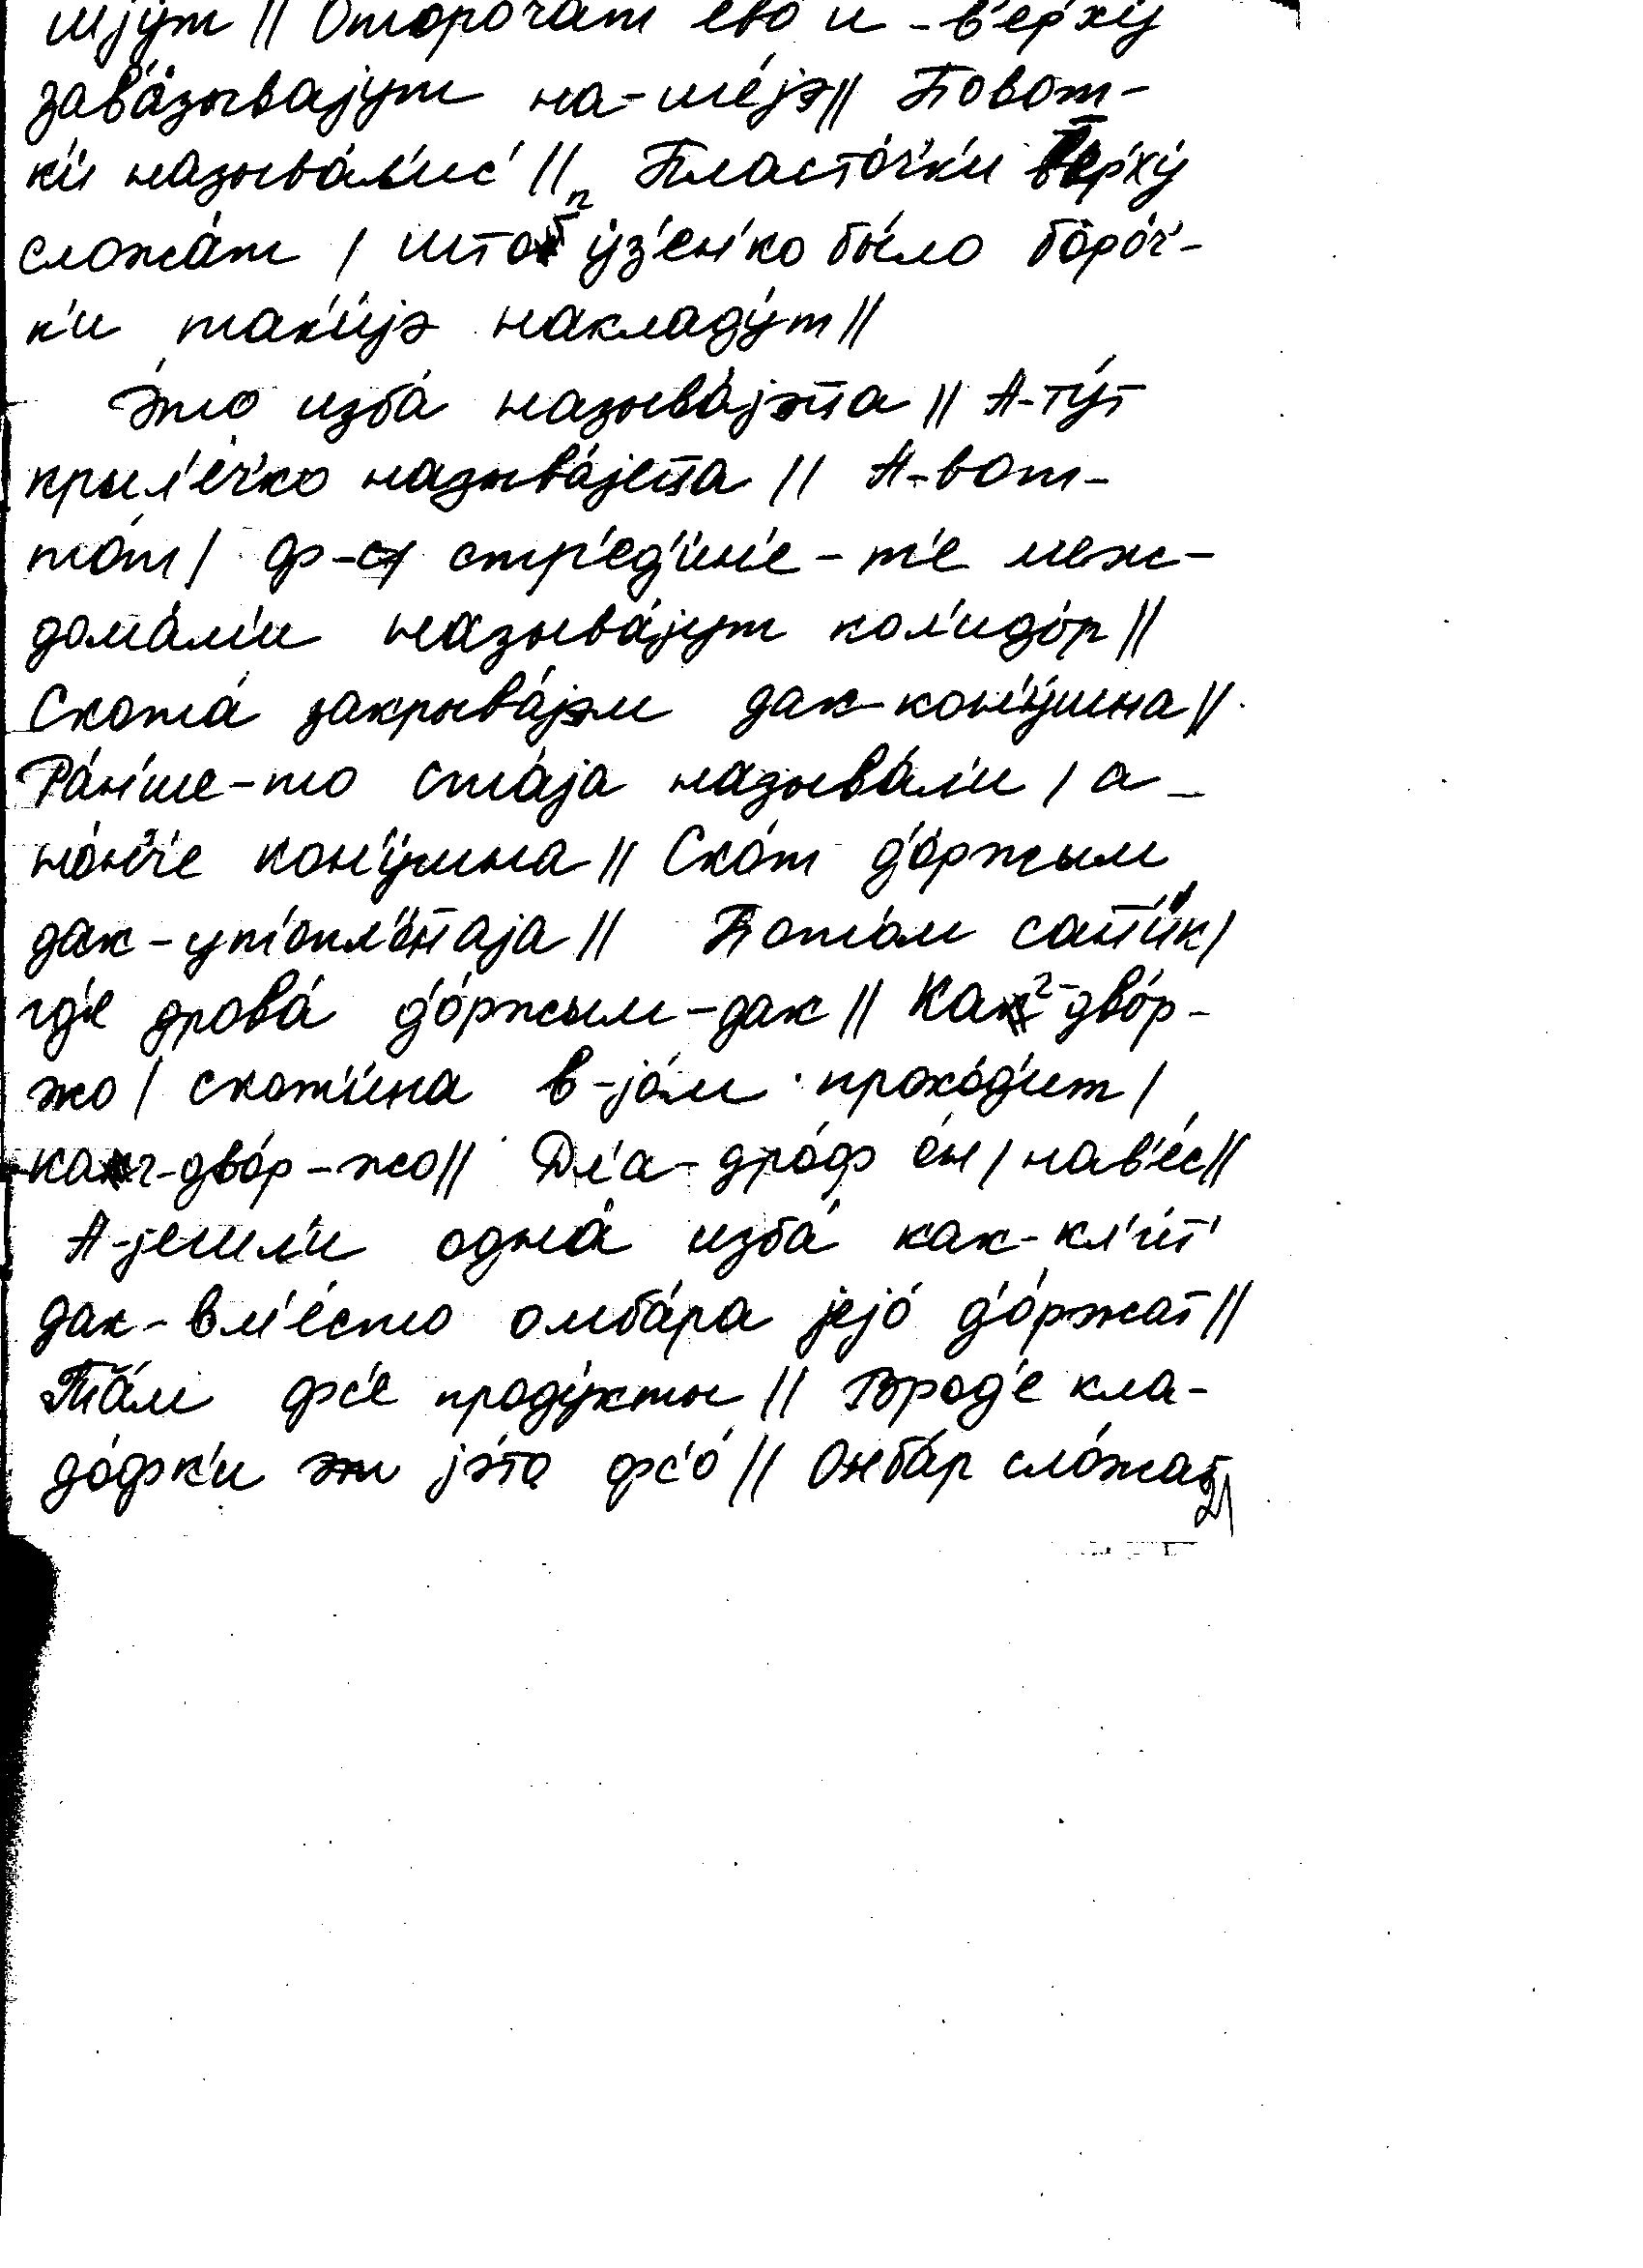 шју́т || Оторочат ево и -в'ерху́
зав'а́зывајут на-ше́јэ || Повот-
к'и называ́л'ис' || Пласто́ч'к'и в'ерху́
сложа́т / штоб у́з'ен'ко бы́ло боро́ч'-
к'и так'и́јэ накладу́т ||
э́то изба́ называ́јэтца || А-ту́т
крыл'е́ч'ко называ́јетца || А-вот-
то́т / ф- стр'ед'и́н'е-т'е меж-
дома́м'и называ́јут кол'идо́р ||
Скота́ закрыва́јэм дак-кон'у́шна ||
Ра́н'ше-то ста́ја называ́л'и / а-
но́нч'е кон'у́шна || Ско́т д'о́ржым
дак-ут'опл'о́наја || Пото́м сат'и́к /
гд'е дрова́ д'о́ржым-дак || Каг-дво́р-
жо / скот'и́на в-јо́м прохо́д'ит /
каг-дво́р-жо || Дл'а-дро́ф о́н / нав'е́с ||
А-јешл'и одна́ изба́ как-кл'и́т'
дак-вм'е́сто омба́ра јејо́ д'о́ржат ||
Та́м фс'е проду́кты || Врод'е кла-
до́фк'и јэ́то фс'о́ || Онба́р сло́жат /